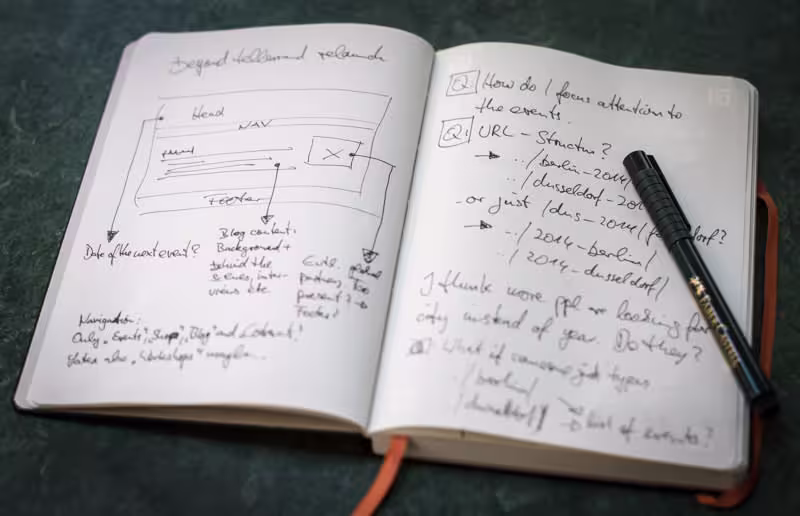 beyond tellerrand relaunch
Head
NAV
Footer
Date of the next event?
Blog content:
Background +
behind the
scenes, inter-
views etc
Evtl. global
partners, too
present? →
Footer?
Navigation:
Only "Events", "Shop", "Blog" and Contact?
später also "Workshops"
Q: How do I focus attention to
the events.
Q: URL - Structur?
→ ../berlin-2014/
../dusseldorf-201
- or just /dus-2014/ dorf?
→ ../2014-berlin/
../2014-dusseldorf/
I think more ppl are looking for
city instead of year. Do they?
Q: What if someone just types
./berlin/
/dusseldorf/ → list of events?